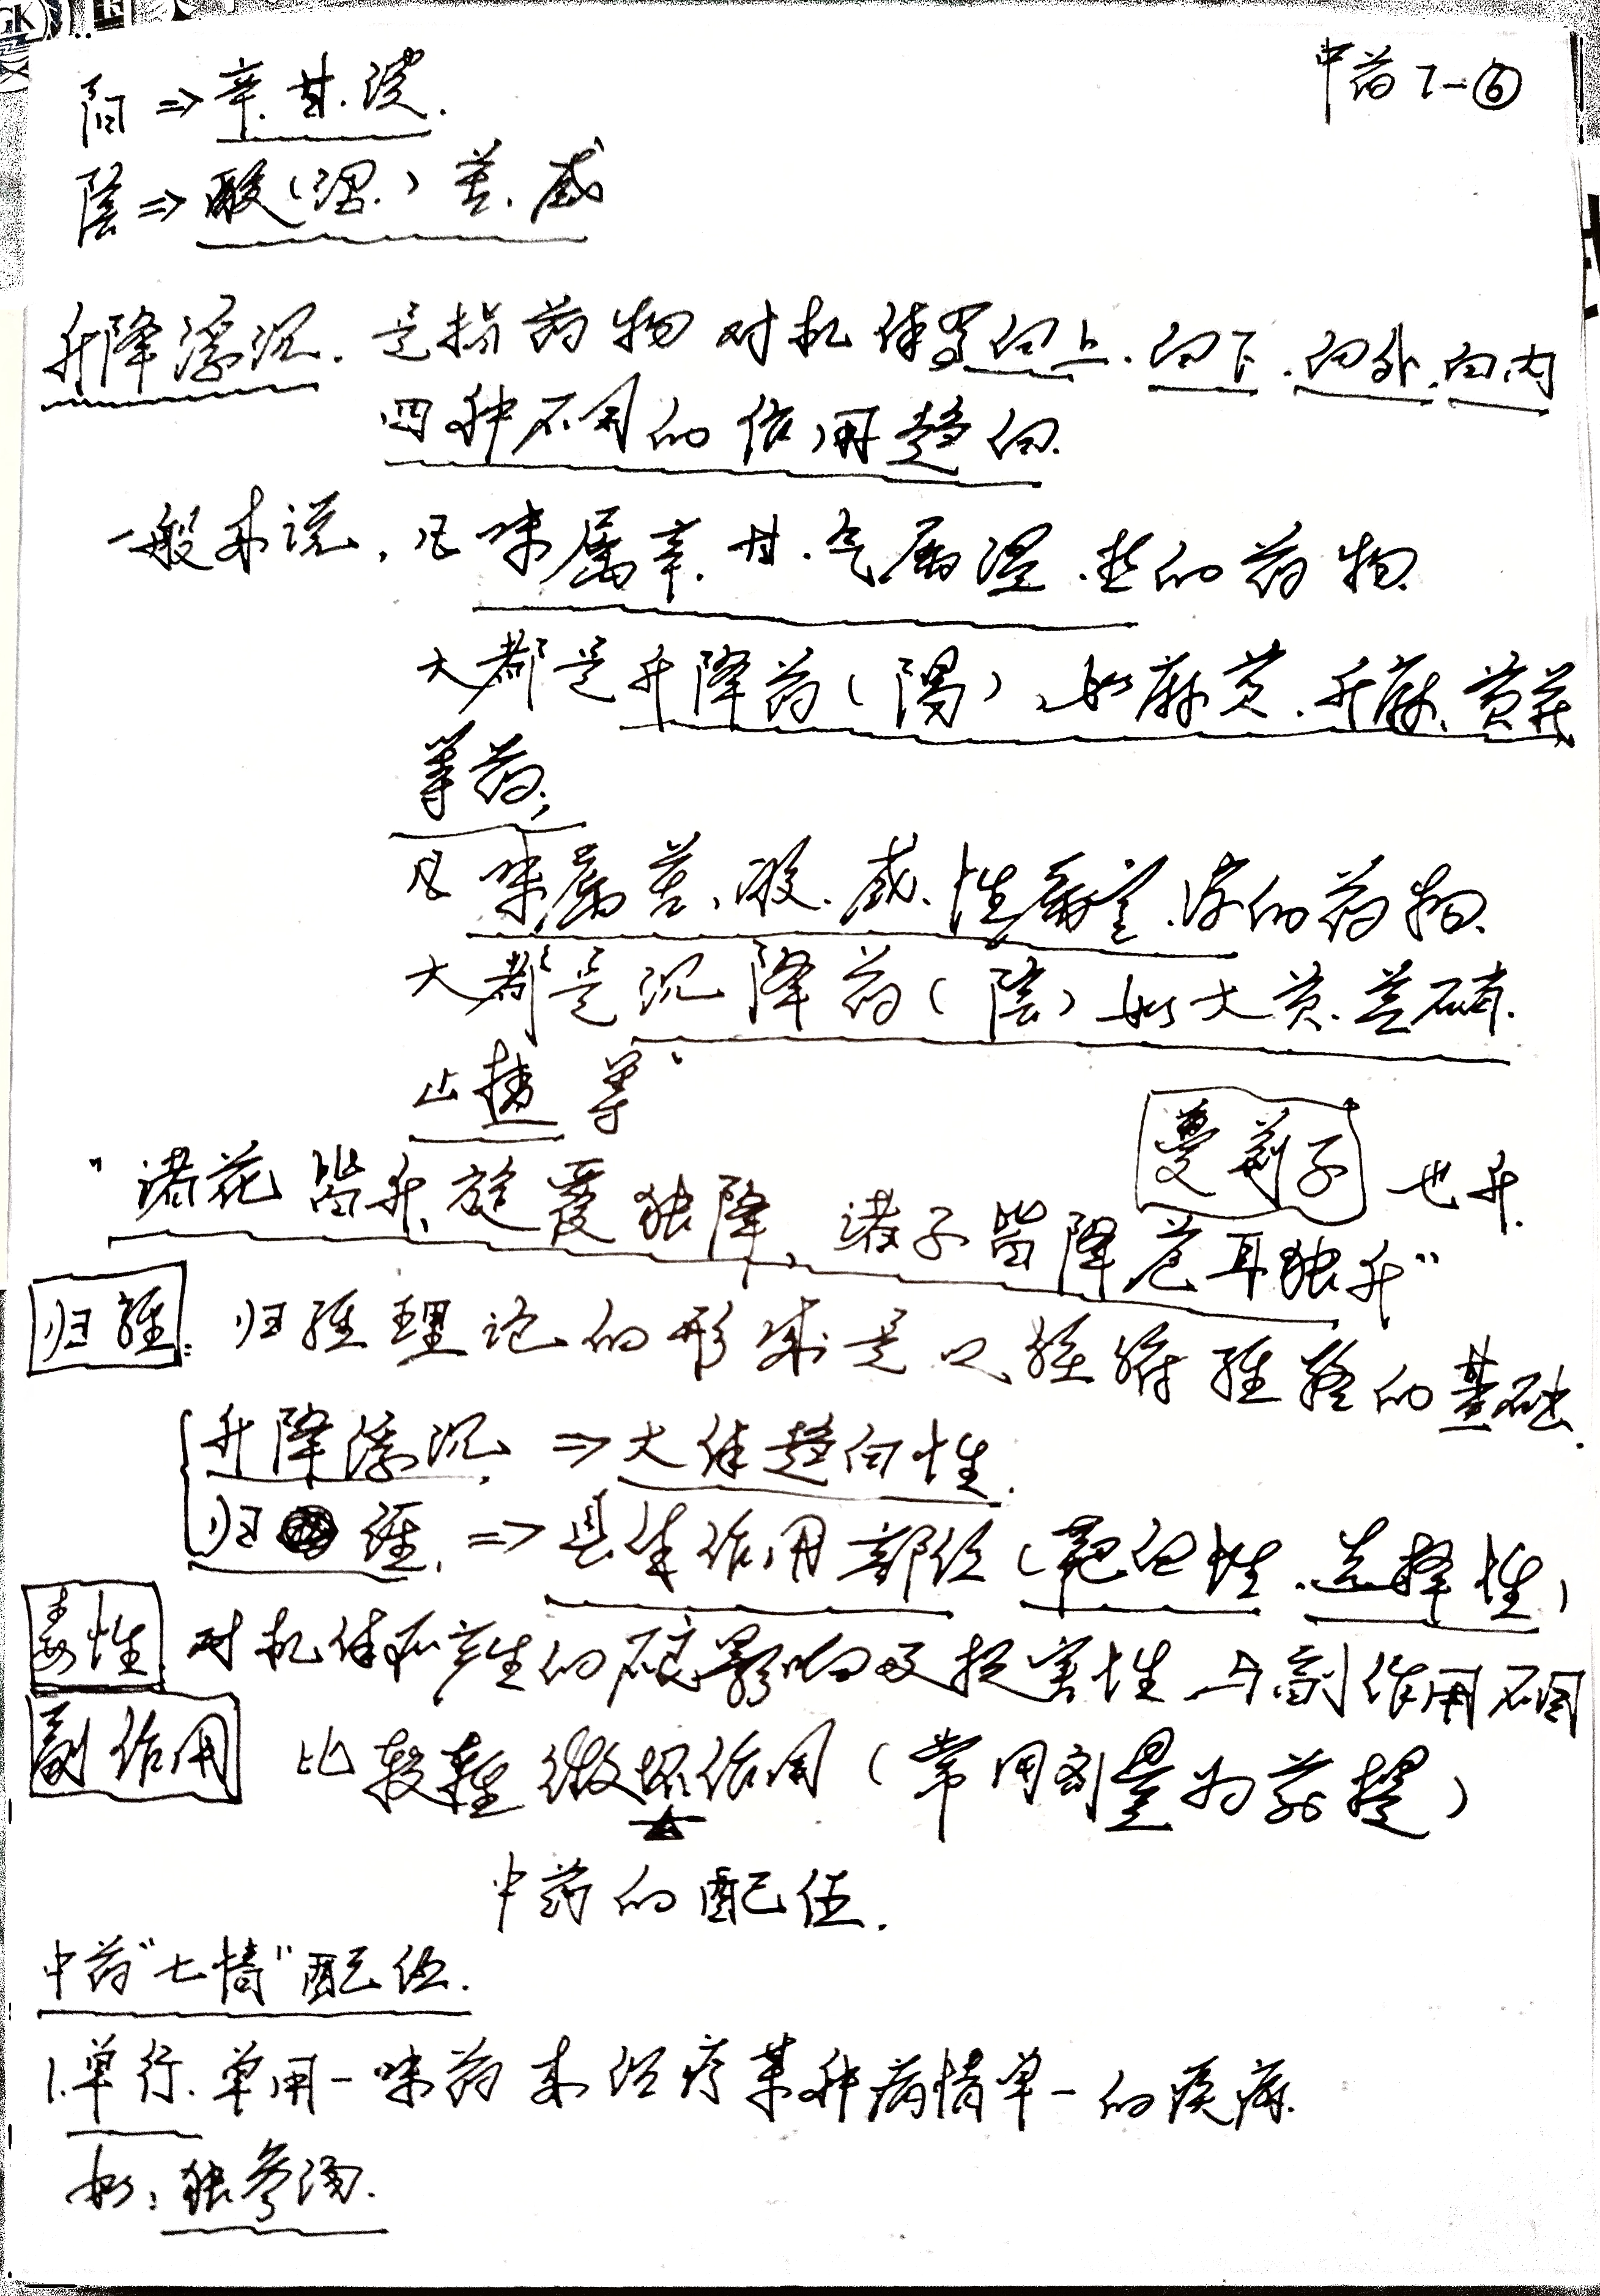 中药7-⑥
阳⇒辛.甘.淡.
陰⇒酸(涩.)苦.咸
升降浮沉.是指药物对机体有向上.向下.向外.向内
四种不同的作用趋向.
一般来说,凡味属辛.甘.气属温.热的药物.
大都是升降药(陽),如麻黄.升麻、黄芪
等药;
凡味属苦、酸.咸.性属寒.凉的药物.
大都是沉降药(陰)如大黄.芒硝.
山楂等
蔓荆子也升.
"诸花皆升,旋覆独降、诸子皆降苍耳独升"
归经:归经理论的形成是以脏腑经络的基础.
升降浮沉,⇒大体趋向性.
归经,⇒具体作用部位(靶向性.选择性)
毒性 对机体所产生的不良影响及损害性 与副作用不同
副作用 比较轻微坏作用(常用剂量为前提)
中药的配伍.
中药"七情"配伍.
1.单行.单用一味药来治疗某种病情单一的疾病.
如:独参汤.